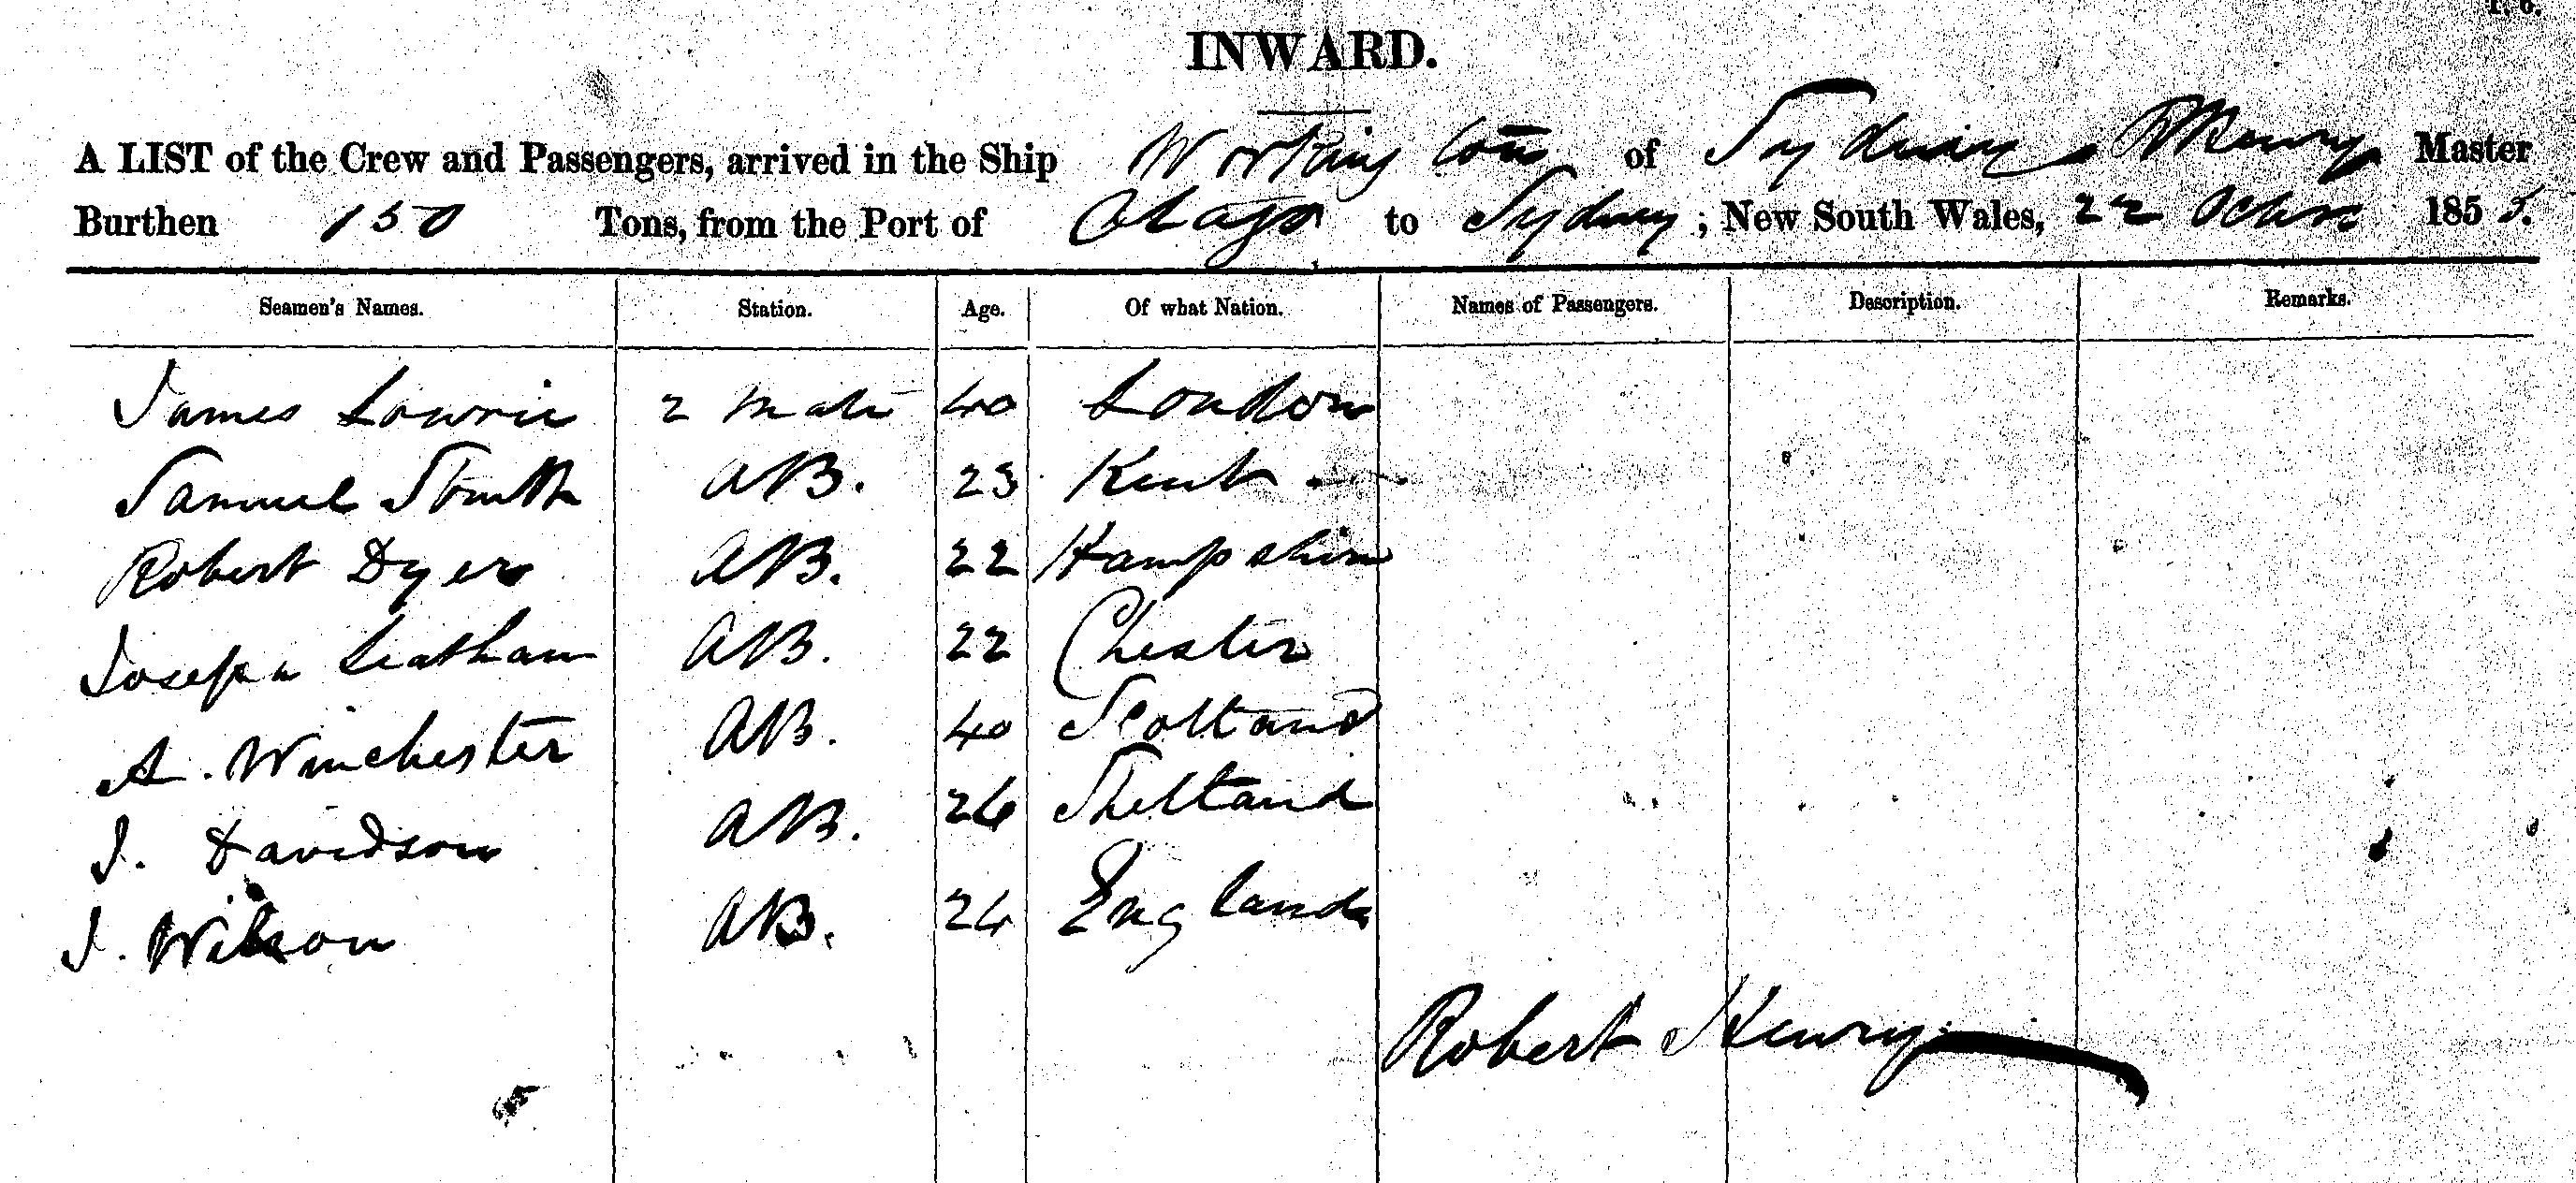 INWARD.
A LIST of the Crew and Passengers, arrived in the Ship Working of Sydney R Henry Master
Burthen 150 Tons, from the Port of Otago to Sydney; New South Wales, 22 1855.
Seamen's Names. Station. Age. Of what Nation. Names of Passengers. Description. Remarks.
James Lowrie 2 Mate 40 London
Samuel AB. 23 Kent
Robert Dyer AB. 22 Hampshire
Joseph Leatham AB. 22 Chester
A. Winchester AB. 40 Scotland
J. Davidson AB. 26 Shetland
J. Wilson AB. 24 England
Robert Henry